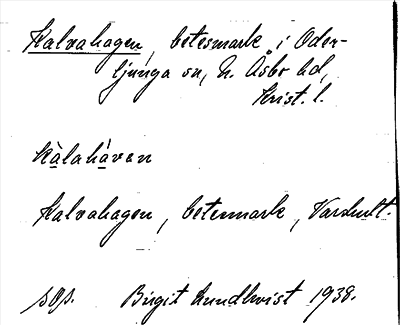 Kalvahagen, betesmark i Oder-
ljunga sn, N. Åsbo hd,
Krist. l.
kàlahàven
Kalvahagen, betesmark, Varshult.
sOp. Birgit Lundkvist 1938.